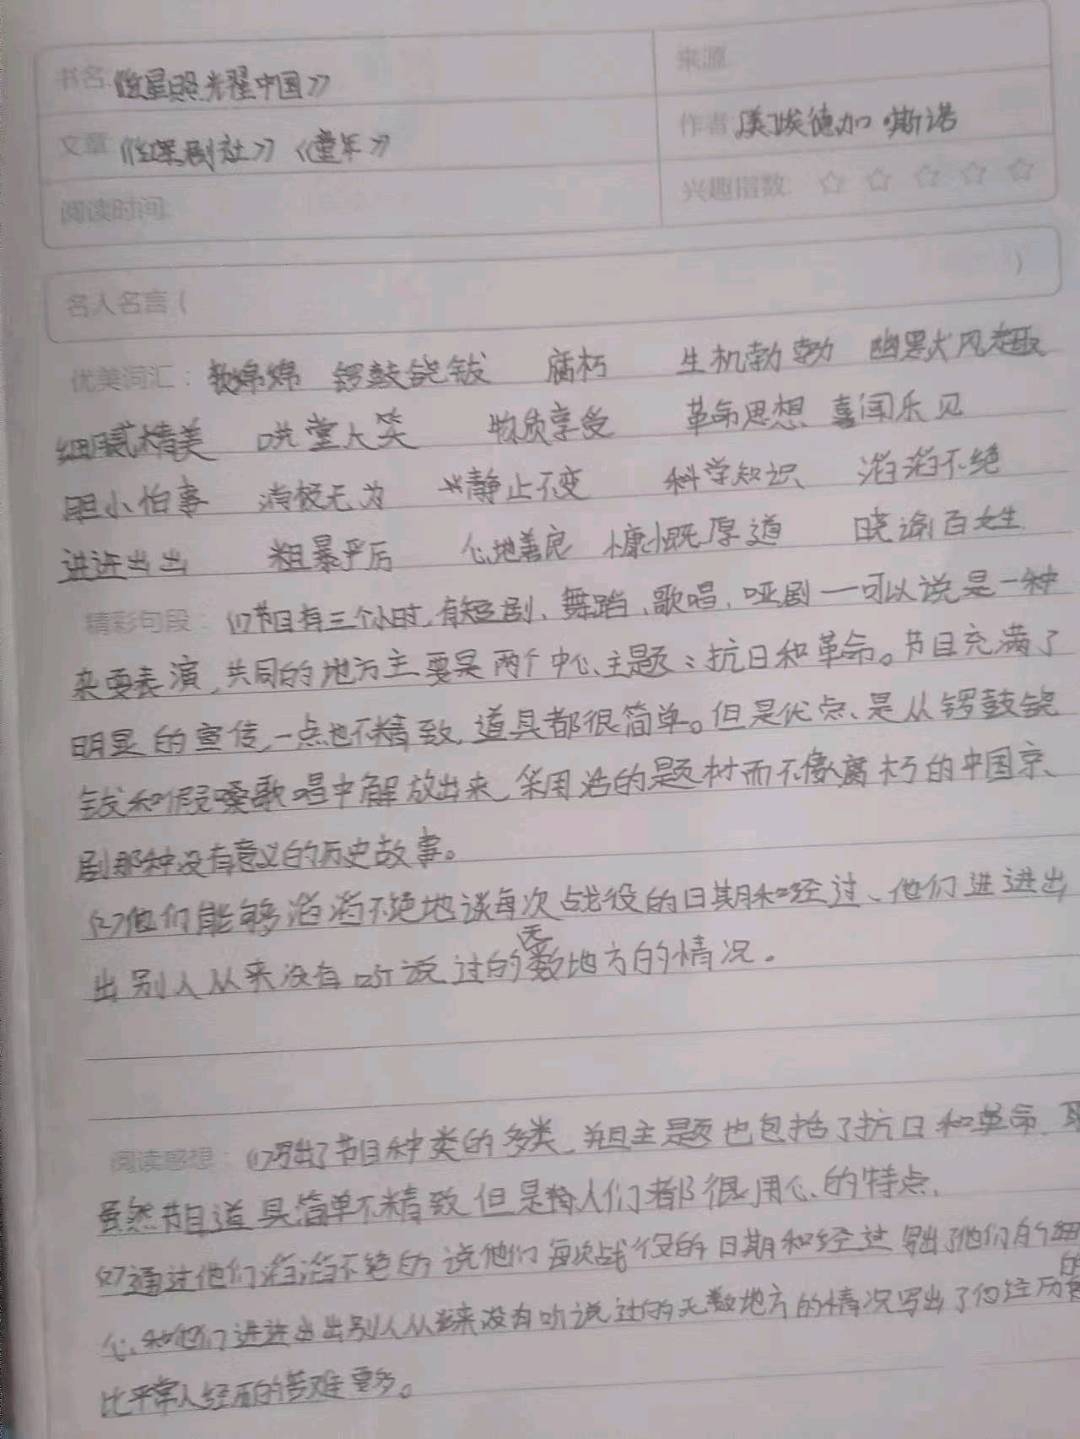 书名:《红星照耀中国》
来源
文章《红军剧社》《童年》
作者 美埃德加·斯诺
阅读时间:
兴趣指数: ☆ ☆ ☆ ☆ ☆
名人名言( )
优美词汇: 软绵绵 锣鼓铙钹 腐朽 生机勃勃 幽默风趣
细腻精美 哄堂大笑 物质享受 革命思想 喜闻乐见
胆小怕事 消极无为 静止不变 科学知识 滔滔不绝
进进出出 粗暴严厉 心地善良 慷慨厚道 晓谕百姓
精彩句段: (1)节目有三个小时,有短剧、舞蹈、歌唱、哑剧—可以说是一种
杂耍表演,共同的地方主要是两个中心主题:抗日和革命。节目充满了
明显的宣传,一点也不精致,道具都很简单。但是优点、是从锣鼓铙
钹和假嗓歌唱中解放出来,采用活的题材而不像腐朽的中国京、
剧那种没有意义的历史故事。
(2)他们能够滔滔不绝地谈每次战役的日期和经过、他们进进出
出别人从来没有听说过的无数地方的情况。
阅读感想: (1)写出了节目种类的多类,并且主题也包括了抗日和革命,
虽然节目道具简单不精致,但是人们都很用心的特点,
(2)通过他们滔滔不绝的说他们每次战役的日期和经过写出了他们的细
心,和他们进进出出别人从来没有听说过的无数地方的情况写出了们经历的
比平常人经历的苦难更多。